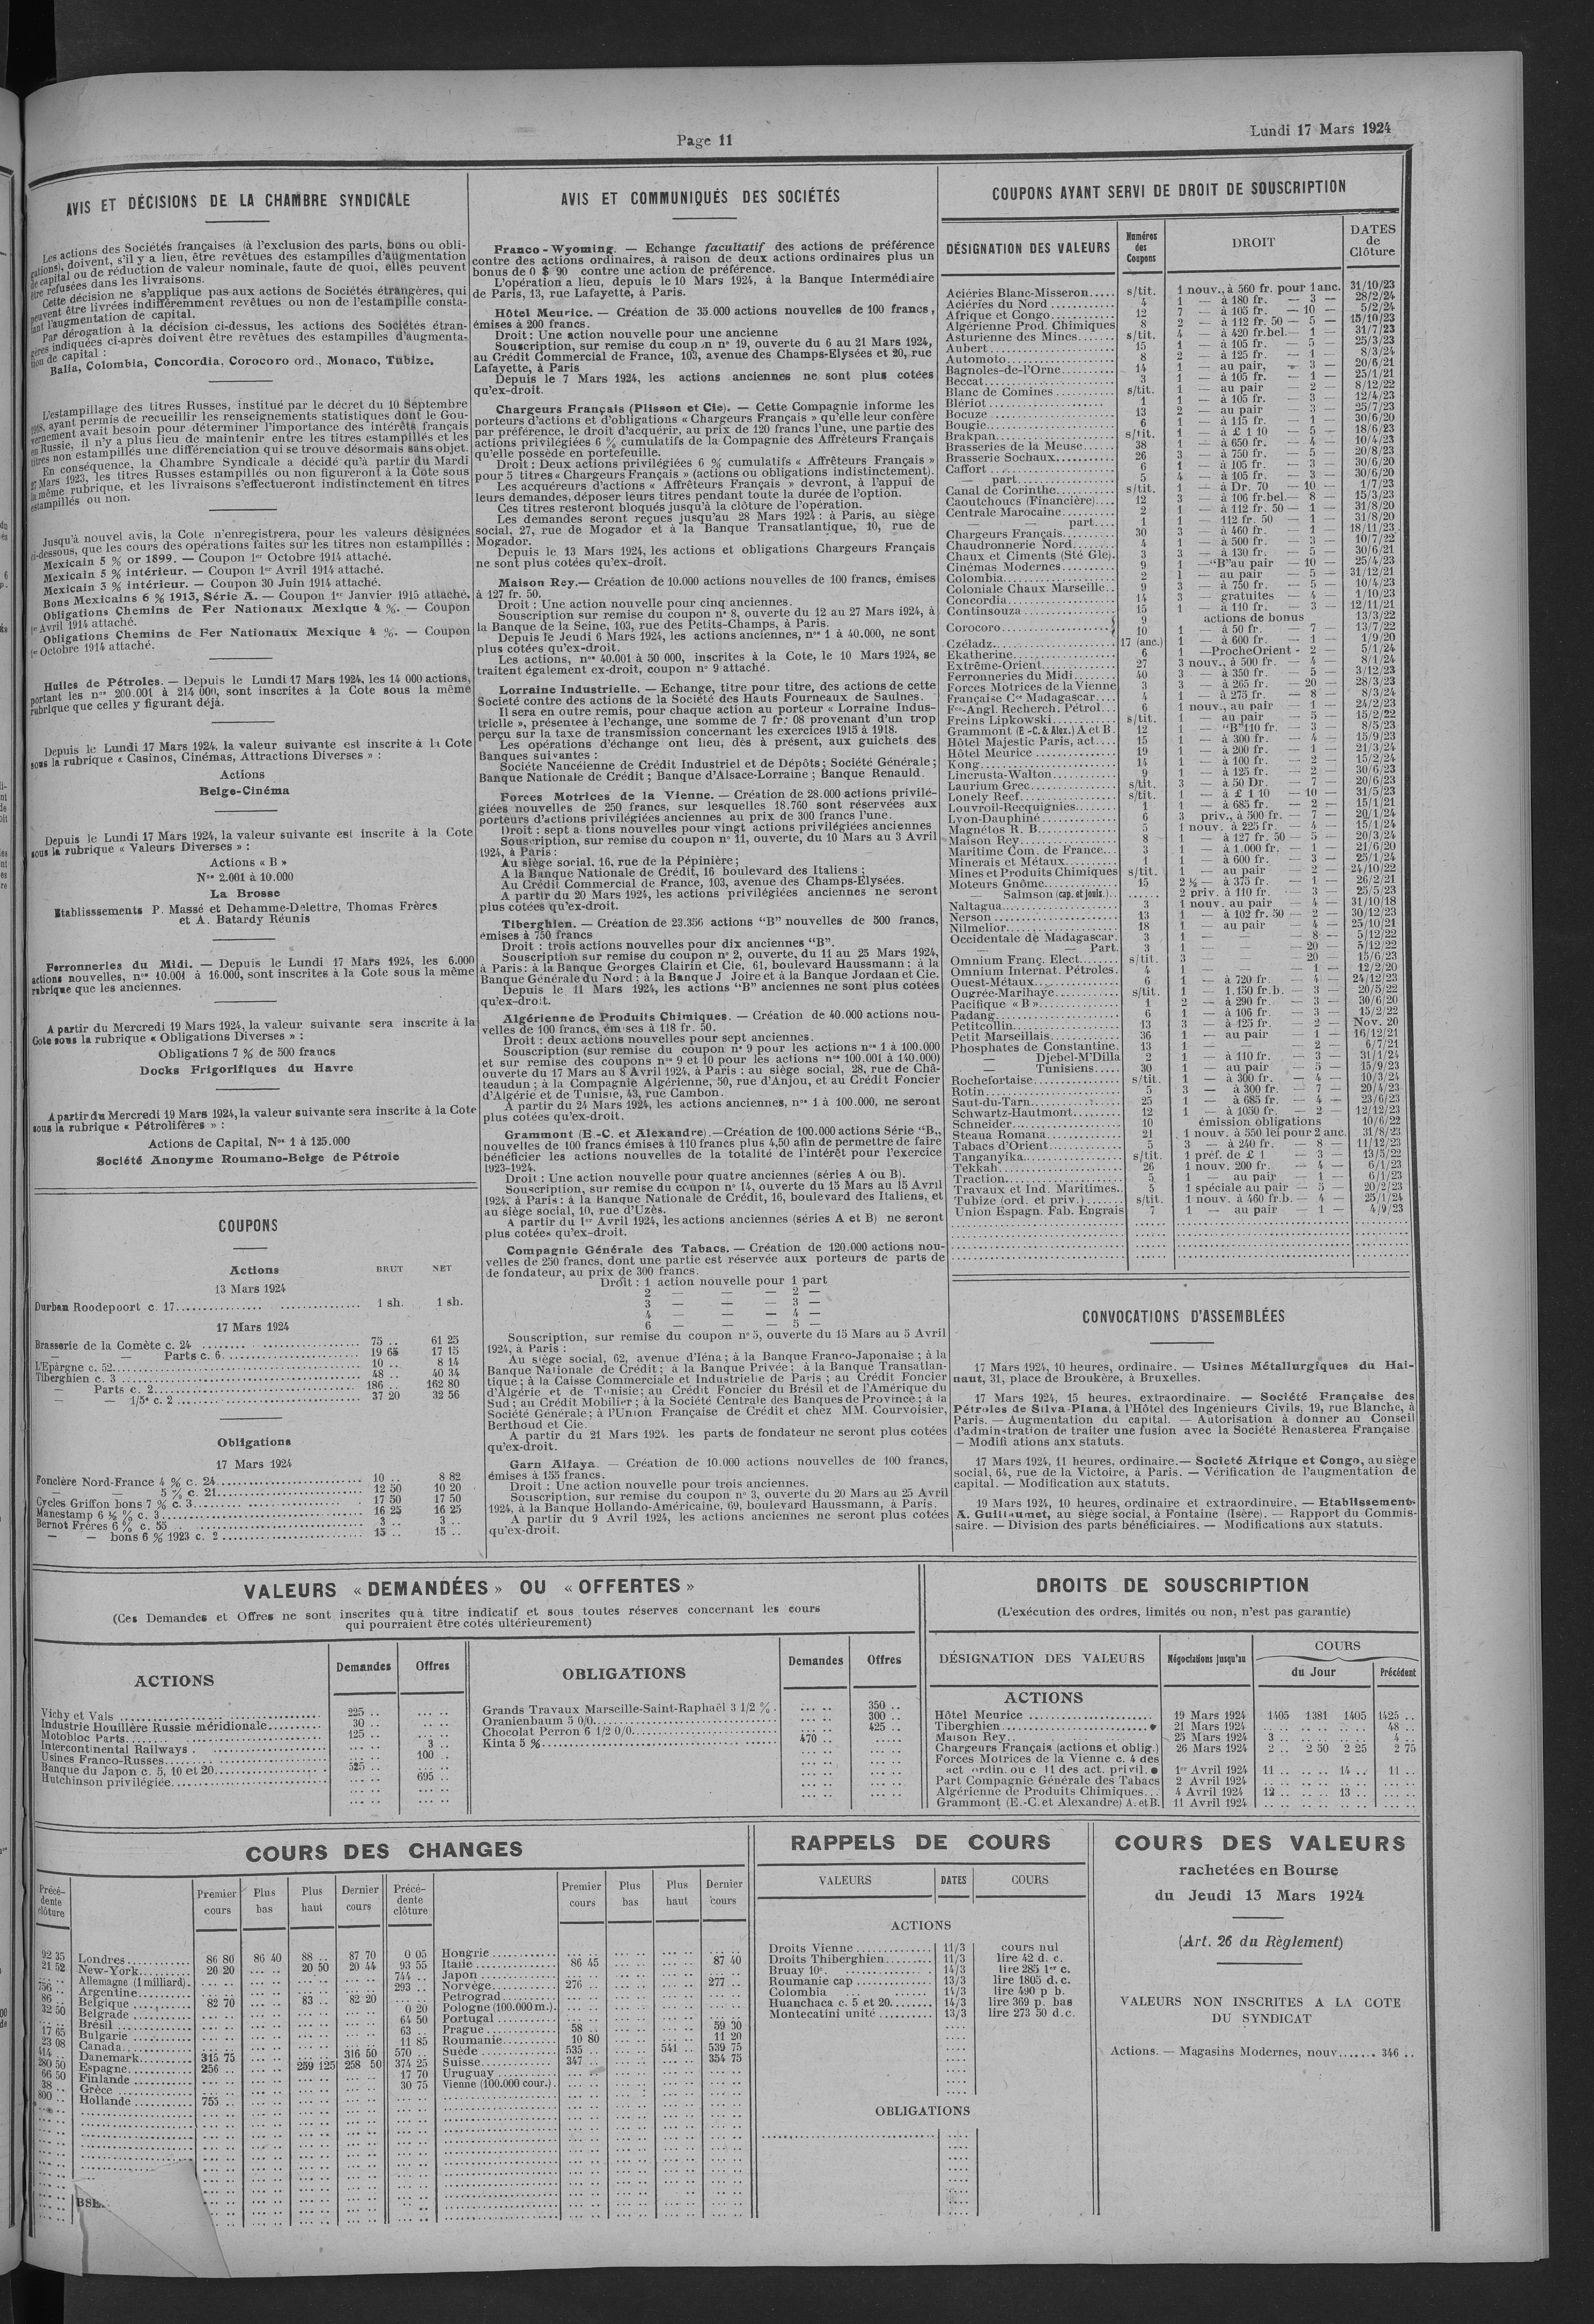 Page 11
Lundi 17 Mars 1924
AVIS ET DÉCISIONS DE LA CHAMBRE SYNDICALE
Les actions des Sociétés françaises (à l'exclusion des parts, bons ou obli-
gations), doivent, s'il y a lieu, être revêtues des estampilles d'augmentation
de capital ou de réduction de valeur nominale, faute de quoi, elles peuvent
être refusées dans les livraisons.
Cette décision ne s'applique pas aux actions de Sociétés étrangères, qui
peuvent être livrées indifféremment revêtues ou non de l'estampille consta-
tant l'augmentation de capital.
Par dérogation à la décision ci-dessus, les actions des Sociétés étran-
gères indiquées ci-après doivent être revêtues des estampilles d'augmenta-
tion de capital :
Balia, Colombia, Concordia, Corocoro ord., Monaco, Tubize.
L'estampillage des titres Russes, institué par le décret du 10 Septembre
1918, ayant permis de recueillir les renseignements statistiques dont le Gou-
vernement avait besoin pour déterminer l'importance des intérêts français
en Russie, il n'y a plus lieu de maintenir entre les titres estampillés et les
titres non estampillés une différenciation qui se trouve désormais sans objet.
En conséquence, la Chambre Syndicale a décidé qu'à partir du Mardi
27 Mars 1923, les titres Russes estampillés ou non figureront à la Cote sous
la même rubrique, et les livraisons s'effectueront indistinctement en titres
estampillés ou non.
Jusqu'à nouvel avis, la Cote n'enregistrera, pour les valeurs désignées
ci-dessous, que les cours des opérations faites sur les titres non estampillés :
Mexicain 5 % or 1899. — Coupon 1er Octobre 1914 attaché.
Mexicain 5 % intérieur. — Coupon 1er Avril 1914 attaché.
Mexicain 3 % intérieur. — Coupon 30 Juin 1914 attaché.
Bons Mexicains 6 % 1913, Série A. — Coupon 1er Janvier 1915 attaché.
Obligations Chemins de Fer Nationaux Mexique 4 %. — Coupon
1er Avril 1914 attaché.
Obligations Chemins de Fer Nationaux Mexique 4 %. — Coupon
1er Octobre 1914 attaché.
Huiles de Pétroles. — Depuis le Lundi 17 Mars 1924, les 14 000 actions,
portant les nos 200.001 à 214 000, sont inscrites à la Cote sous la même
rubrique que celles y figurant déjà.
Depuis le Lundi 17 Mars 1924, la valeur suivante est inscrite à la Cote
sous la rubrique « Casinos, Cinémas, Attractions Diverses » :
Actions
Belge-Cinéma
Depuis le Lundi 17 Mars 1924, la valeur suivante est inscrite à la Cote
sous la rubrique « Valeurs Diverses » :
Actions « B »
Nos 2.001 à 10.000
La Brosse
Etablisssements P. Massé et Dehamme-Delettre, Thomas Frères
et A. Batardy Réunis
Ferronneries du Midi. — Depuis le Lundi 17 Mars 1924, les 6.000
actions nouvelles, nos 10.001 à 16.000, sont inscrites à la Cote sous la même
rubrique que les anciennes.
A partir du Mercredi 19 Mars 1924, la valeur suivante sera inscrite à la
Cote sous la rubrique « Obligations Diverses » :
Obligations 7 % de 500 francs
Docks Frigorifiques du Havre
A partir du Mercredi 19 Mars 1924, la valeur suivante sera inscrite à la Cote
sous la rubrique « Pétrolifères » :
Actions de Capital, Nos 1 à 125.000
Société Anonyme Roumano-Belge de Pétrole
COUPONS
Actions BRUT NET
13 Mars 1924
Durban Roodepoort c. 17 1 sh. 1 sh.
17 Mars 1924
Brasserie de la Comète c. 24 75 .. 61 25
— — Parts c. 6 19 65 17 15
L'Epargne c. 52 10 .. 8 14
Tiberghien c. 3 48 .. 40 34
— Parts c. 2 186 .. 162 80
— — 1/5e c. 2 37 20 32 56
Obligations
17 Mars 1924
Foncière Nord-France 4 % c. 24 10 .. 8 82
— — 5 % c. 21 12 50 10 20
Cycles Griffon bons 7 % c. 3 17 50 17 50
Manestamp 6 ½ % c. 3 16 25 16 25
Bernot Frères 6 % c. 55 3 .. 3 ..
— — bons 6 % 1923 c. 2 15 .. 15 ..
AVIS ET COMMUNIQUÉS DES SOCIÉTÉS
Franco-Wyoming. — Echange facultatif des actions de préférence
contre des actions ordinaires, à raison de deux actions ordinaires plus un
bonus de 0 $ 90 contre une action de préférence.
L'opération a lieu, depuis le 10 Mars 1924, à la Banque Intermédiaire
de Paris, 13, rue Lafayette, à Paris.
Hôtel Meurice. — Création de 35.000 actions nouvelles de 100 francs,
émises à 200 francs.
Droit : Une action nouvelle pour une ancienne
Souscription, sur remise du coupon n° 19, ouverte du 6 au 21 Mars 1924,
au Crédit Commercial de France, 103, avenue des Champs-Elysées et 20, rue
Lafayette, à Paris
Depuis le 7 Mars 1924, les actions anciennes ne sont plus cotées
qu'ex-droit.
Chargeurs Français (Plisson et Cie). — Cette Compagnie informe les
porteurs d'actions et d'obligations « Chargeurs Français » qu'elle leur confère
par préférence, le droit d'acquérir, au prix de 120 francs l'une, une partie des
actions privilégiées 6 % cumulatifs de la Compagnie des Affréteurs Français
qu'elle possède en portefeuille.
Droit : Deux actions privilégiées 6 % cumulatifs « Affréteurs Français »
pour 5 titres « Chargeurs Français » (actions ou obligations indistinctement).
Les acquéreurs d'actions « Affréteurs Français » devront, à l'appui de
leurs demandes, déposer leurs titres pendant toute la durée de l'option.
Ces titres resteront bloqués jusqu'à la clôture de l'opération.
Les demandes seront reçues jusqu'au 28 Mars 1924 : à Paris, au siège
social, 27, rue de Mogador et à la Banque Transatlantique, 10, rue de
Mogador.
Depuis le 13 Mars 1924, les actions et obligations Chargeurs Français
ne sont plus cotées qu'ex-droit.
Maison Rey. — Création de 10.000 actions nouvelles de 100 francs, émises
à 127 fr. 50.
Droit : Une action nouvelle pour cinq anciennes.
Souscription sur remise du coupon n° 8, ouverte du 12 au 27 Mars 1924, à
la Banque de la Seine, 103, rue des Petits-Champs, à Paris.
Depuis le Jeudi 6 Mars 1924, les actions anciennes, nos 1 à 40.000, ne sont
plus cotées qu'ex-droit.
Les actions, nos 40.001 à 50 000, inscrites à la Cote, le 10 Mars 1924, se
traitent également ex-droit, coupon n° 9 attaché.
Lorraine Industrielle. — Echange, titre pour titre, des actions de cette
Société contre des actions de la Société des Hauts Fourneaux de Saulnes.
Il sera en outre remis, pour chaque action au porteur « Lorraine Indus-
trielle », présentée à l'échange, une somme de 7 fr. 08 provenant d'un trop
perçu sur la taxe de transmission concernant les exercices 1915 à 1918.
Les opérations d'échange ont lieu, dès à présent, aux guichets des
Banques suivantes :
Société Nancéienne de Crédit Industriel et de Dépôts ; Société Générale ;
Banque Nationale de Crédit ; Banque d'Alsace-Lorraine ; Banque Renauld.
Forces Motrices de la Vienne. — Création de 28.000 actions privilé-
giées nouvelles de 250 francs, sur lesquelles 18.760 sont réservées aux
porteurs d'actions privilégiées anciennes au prix de 300 francs l'une.
Droit : sept a tions nouvelles pour vingt actions privilégiées anciennes
Souscription, sur remise du coupon n° 11, ouverte, du 10 Mars au 3 Avril
1924, à Paris :
Au siège social, 16, rue de la Pépinière ;
A la Banque Nationale de Crédit, 16 boulevard des Italiens ;
Au Crédit Commercial de France, 103, avenue des Champs-Elysées.
A partir du 20 Mars 1924, les actions privilégiées anciennes ne seront
plus cotées qu'ex-droit.
Tiberghien. — Création de 23.356 actions "B" nouvelles de 500 francs,
émises à 750 francs
Droit : trois actions nouvelles pour dix anciennes "B".
Souscription sur remise du coupon n° 2, ouverte, du 11 au 25 Mars 1924,
à Paris : à la Banque Georges Clairin et Cie, 61, boulevard Haussmann ; à la
Banque Générale du Nord ; à la Banque J Joire et à la Banque Jordaan et Cie.
Depuis le 11 Mars 1924, les actions "B" anciennes ne sont plus cotées
qu'ex-droit.
Algérienne de Produits Chimiques. — Création de 40.000 actions nou-
velles de 100 francs, émises à 118 fr. 50.
Droit : deux actions nouvelles pour sept anciennes.
Souscription (sur remise du coupon n° 9 pour les actions nos 1 à 100.000
et sur remise des coupons nos 9 et 10 pour les actions nos 100.001 à 140.000)
ouverte du 17 Mars au 8 Avril 1924, à Paris : au siège social, 28, rue de Châ-
teaudun ; à la Compagnie Algérienne, 50, rue d'Anjou, et au Crédit Foncier
d'Algérie et de Tunisie, 43, rue Cambon.
A partir du 24 Mars 1924, les actions anciennes, nos 1 à 100.000, ne seront
plus cotées qu'ex-droit.
Grammont (E.-C. et Alexandre). — Création de 100.000 actions Série "B,,
nouvelles de 100 francs émises à 110 francs plus 4,50 afin de permettre de faire
bénéficier les actions nouvelles de la totalité de l'intérêt pour l'exercice
1923-1924.
Droit : Une action nouvelle pour quatre anciennes (séries A ou B).
Souscription, sur remise du coupon n° 14, ouverte du 15 Mars au 15 Avril
1924, à Paris : à la Banque Nationale de Crédit, 16, boulevard des Italiens, et
au siège social, 10, rue d'Uzès.
A partir du 1er Avril 1924, les actions anciennes (séries A et B) ne seront
plus cotées qu'ex-droit.
Compagnie Générale des Tabacs. — Création de 120.000 actions nou-
velles de 250 francs, dont une partie est réservée aux porteurs de parts de
de fondateur, au prix de 300 francs.
Droit : 1 action nouvelle pour 1 part
2 — — — 2 —
3 — — — 3 —
4 — — — 4 —
6 — — — 5 —
Souscription, sur remise du coupon n° 5, ouverte du 15 Mars au 5 Avril
1924, à Paris :
Au siège social, 62, avenue d'Iéna ; à la Banque Franco-Japonaise ; à la
Banque Nationale de Crédit ; à la Banque Privée ; à la Banque Transatlan-
tique ; à la Caisse Commerciale et Industrielle de Paris ; au Crédit Foncier
d'Algérie et de Tunisie ; au Crédit Foncier du Brésil et de l'Amérique du
Sud ; au Crédit Mobilier ; à la Société Centrale des Banques de Province ; à la
Société Générale ; à l'Union Française de Crédit et chez MM. Courvoisier,
Berthoud et Cie.
A partir du 21 Mars 1924. les parts de fondateur ne seront plus cotées
qu'ex-droit.
Garn Alfaya. — Création de 10.000 actions nouvelles de 100 francs,
émises à 155 francs.
Droit : Une action nouvelle pour trois anciennes.
Souscription, sur remise du coupon n° 3, ouverte du 20 Mars au 25 Avril
1924, à la Banque Hollando-Américaine, 69, boulevard Haussmann, à Paris.
A partir du 9 Avril 1924, les actions anciennes ne seront plus cotées
qu'ex-droit.
COUPONS AYANT SERVI DE DROIT DE SOUSCRIPTION
DÉSIGNATION DES VALEURS Numéros des Coupons DROIT DATES de Clôture
Aciéries Blanc-Misseron s/tit. 1 nouv., à 560 fr. pour 1 anc. 31/10/23
Aciéries du Nord 4 1 — à 180 fr. — 3 — 28/2/24
Afrique et Congo 12 7 — à 105 fr. — 10 — 5/2/24
Algérienne Prod. Chimiques 8 2 — à 112 fr. 50 — 5 — 15/10/23
Asturienne des Mines s/tit. 4 — à 420 fr.bel. — 1 — 31/7/23
Aubert 15 1 — à 105 fr. — 5 — 25/3/23
Automoto 8 2 — à 125 fr. — 1 — 8/3/24
Bagnoles-de-l'Orne 14 1 — au pair, — 3 — 20/6/21
Beccat 3 1 — à 105 fr. — 1 — 25/1/21
Blanc de Comines s/tit. 1 — au pair — 2 — 8/12/22
Blériot 1 1 — à 105 fr. — 3 — 12/4/23
Bocuze 13 2 — au pair — 3 — 25/7/23
Bougie 6 1 — à 115 fr. — 1 — 30/6/20
Brakpan s/tit. 1 — à £ 1 10 — 5 — 18/6/23
Brasseries de la Meuse 38 1 — à 650 fr. — 4 — 10/4/23
Brasserie Sochaux 26 3 — à 750 fr. — 5 — 20/8/23
Caffort 6 1 — à 105 fr. — 3 — 30/6/20
— part 5 4 — à 105 fr. — 3 — 30/6/20
Canal de Corinthe s/tit. 1 — à Dr. 70 — 10 — 1/7/23
Caoutchoucs (Financière) 12 3 — à 106 fr.bel. — 8 — 15/3/23
Centrale Marocaine 2 1 — à 112 fr. 50 — 1 — 31/8/20
— — part 1 1 112 fr. 50 — 1 — 31/8/20
Chargeurs Français 30 3 — à 460 fr. — 1 — 18/11/23
Chaudronnerie Nord 4 1 — à 500 fr. — 3 — 10/7/22
Chaux et Ciments (Sté Gle) 3 3 — à 130 fr. — 5 — 30/6/21
Cinémas Modernes 9 1 — "B" au pair — 10 — 25/4/23
Colombia 2 1 — au pair — 5 — 31/12/21
Coloniale Chaux Marseille 9 3 — à 750 fr. — 5 — 10/4/23
Concordia 14 3 — gratuites — 4 — 1/10/23
Continsouza 15 1 — à 110 fr. — 3 — 12/11/21
Corocoro 9 actions de bonus 13/3/22
10 1 — à 50 fr. — 7 — 13/7/22
Czéladz 17 (anc.) 1 — à 600 fr. — 1 — 1/9/20
Ekatherine 6 1 — ProcheOrient - 2 — 5/1/24
Extrême-Orient 27 3 nouv., à 500 fr. — 4 — 8/1/24
Ferronneries du Midi 40 3 — à 350 fr. — 5 — 3/12/23
Forces Motrices de la Vienne 3 3 — à 265 fr. — 20 — 28/3/23
Française Ce Madagascar 4 1 — à 275 fr. — 8 — 8/3/24
Fse-Angl. Recherch. Pétrol 6 1 nouv., au pair — 1 — 24/2/23
Freins Lipkowski s/tit. 1 — au pair — 5 — 15/2/22
Grammont (E.-C. & Alex.) A et B 12 1 — "B" 110 fr. — 3 — 8/5/23
Hôtel Majestic Paris, act. 15 1 — à 300 fr. — 4 — 15/9/23
Hôtel Meurice 19 1 — à 200 fr. — 1 — 21/3/24
Kong 14 1 — à 100 fr. — 2 — 15/2/24
Lincrusta-Walton 9 1 — à 125 fr. — 2 — 30/6/23
Laurium Grec s/tit. 3 — à 50 Dr. — 7 — 20/6/23
Lonely Reef s/tit. 1 — à £ 1 10 — 10 — 31/5/23
Louvroil-Recquignies 1 1 — à 685 fr. — 2 — 15/1/21
Lyon-Dauphiné 6 3 priv., à 500 fr. — 7 — 20/1/24
Magnétos R. B. 5 1 nouv. à 225 fr. — 4 — 15/1/24
Maison Rey 8 1 — à 127 fr. 50 — 5 — 20/3/24
Maritime Com. de France 3 1 — à 1.000 fr. — 1 — 21/6/20
Minerais et Métaux 1 1 — à 600 fr. — 3 — 25/1/24
Mines et Produits Chimiques s/tit. 1 — au pair — 2 — 24/10/22
Moteurs Gnôme 15 2 ½ — à 375 fr. — 1 — 26/2/21
Salmson (cap. et jouis.) 2 priv. à 110 fr. — 3 — 25/5/23
Naltagua 3 1 nouv. au pair — 4 — 31/10/18
Nerson 13 1 — à 102 fr. 50 — 2 — 30/12/23
Nilmelior 18 1 — au pair — 4 — 25/10/21
Occidentale de Madagascar 3 1 — — 8 — 5/12/22
— — Part. 3 1 — — 20 — 5/12/22
Omnium Franç. Elect. s/tit. 3 — — 20 15/6/23
Omnium Internat. Pétroles 4 1 — — 1 — 12/2/20
Ouest-Métaux 6 1 — à 720 fr. — 4 — 24/12/23
Ougrée-Marihaye s/tit. 1 — 1.150 fr.b. — 3 — 20/5/22
Pacifique « B » 1 2 — à 290 fr. — 3 — 30/6/20
Padang 6 1 — à 106 fr. — 3 — 15/2/22
Petitcollin 13 3 — à 125 fr. — 2 — Nov. 20
Petit Marseillais 36 1 — au pair — 1 — 16/12/21
Phosphates de Constantine 13 1 — — 2 — 6/7/21
— Djebel-M'Dilla 2 1 — à 110 fr. — 3 — 31/1/24
— Tunisiens 30 1 — au pair — 5 — 15/9/23
Rochefortaise s/tit. 1 — à 300 fr. — 4 — 10/3/24
Rotin 5 3 — à 300 fr. — 7 — 20/4/23
Saut-du-Tarn 25 1 — à 685 fr. — 4 — 23/6/23
Schwartz-Hautmont 12 1 — à 1050 fr. — 2 — 12/12/23
Schneider 10 émission obligations 10/6/22
Steaua Romana 21 1 nouv. à 550 lei pour 2 anc. 31/8/23
Tabacs d'Orient 5 3 — à 240 fr. — 8 — 11/12/23
Tanganyika s/tit. 1 préf. de £ 1 — 3 — 13/5/22
Tekkah 26 1 nouv. 200 fr. — 4 — 6/1/23
Traction 5 1 — au pair — 1 — 6/1/23
Travaux et Ind. Maritimes 5 1 spéciale au pair — 5 — 20/2/23
Tubize (ord. et priv.) s/tit. 1 nouv. à 460 fr.b. — 4 — 25/1/24
Union Espagn. Fab. Engrais 7 1 — au pair — 1 — 4/9/23
CONVOCATIONS D'ASSEMBLÉES
17 Mars 1924, 10 heures, ordinaire. — Usines Métallurgiques du Hai-
naut, 31, place de Broukère, à Bruxelles.
17 Mars 1924, 15 heures, extraordinaire. — Société Française des
Pétroles de Silva-Plana, à l'Hôtel des Ingénieurs Civils, 19, rue Blanche, à
Paris. — Augmentation du capital. — Autorisation à donner au Conseil
d'adminstration de traiter une fusion avec la Société Renasterea Française
— Modifi ations anx statuts.
17 Mars 1924, 11 heures, ordinaire. — Societé Afrique et Congo, au siège
social, 64, rue de la Victoire, à Paris. — Vérification de l'augmentation de
capital. — Modification aux statuts.
19 Mars 1924, 10 heures, ordinaire et extraordinaire. — Etablissements
A. Guillaumet, au siège social, à Fontaine (Isère). — Rapport du Commis-
saire. — Division des parts bénéficiaires. — Modifications aux statuts.
VALEURS « DEMANDÉES » OU « OFFERTES »
(Ces Demandes et Offres ne sont inscrites qu'à titre indicatif et sous toutes réserves concernant les cours
qui pourraient être cotés ultérieurement)
ACTIONS Demandes Offres
Vichy et Vals 225 ..
Industrie Houillère Russie méridionale 30 ..
Motobloc Parts 125 ..
Intercontinental Railways 3 ..
Usines Franco-Russes 100 ..
Banque du Japon c. 5, 10 et 20 525 ..
Hutchinson privilégiée 695 ..
OBLIGATIONS Demandes Offres
Grands Travaux Marseille-Saint-Raphaël 3 1/2 % 350 ..
Oranienbaum 5 0/0 300 ..
Chocolat Perron 6 1/2 0/0 425 ..
Kinta 5 % 470 ..
DROITS DE SOUSCRIPTION
(L'exécution des ordres, limités ou non, n'est pas garantie)
DÉSIGNATION DES VALEURS Négociations jusqu'au COURS
du Jour Précédent
ACTIONS
Hôtel Meurice 19 Mars 1924 1405 1381 1405 1425 ..
Tiberghien 21 Mars 1924 48 ..
Maison Rey 25 Mars 1924 3 .. 4 ..
Chargeurs Français (actions et oblig.) 26 Mars 1924 2 .. 2 50 2 25 2 75
Forces Motrices de la Vienne c. 4 des
act ordin. ou c 11 des act. privil. 1er Avril 1924 11 .. 14 .. 11 ..
Part Compagnie Générale des Tabacs 2 Avril 1924
Algérienne de Produits Chimiques 4 Avril 1924 12 .. 13 ..
Grammont (E.-C. et Alexandre) A. et B. 11 Avril 1924
COURS DES CHANGES
Précédente clôture Premier cours Plus bas Plus haut Dernier cours
92 35 Londres 86 80 86 40 88 .. 87 70
21 52 New-York 20 20 20 50 20 44
Allemagne (1 milliard)
756 .. Argentine
86 .. Belgique 82 70 83 .. 82 20
32 50 Belgrade
Brésil
17 65 Bulgarie
23 08 Canada
414 .. Danemark 315 75 316 50
280 50 Espagne 256 .. 259 125 258 50
66 50 Finlande
38 .. Grèce
800 .. Hollande 755 ..
BSE
Précédente clôture Premier cours Plus bas Plus haut Dernier cours
0 05 Hongrie
93 55 Italie 86 45 87 40
744 .. Japon
293 .. Norvège 276 .. 277 ..
Petrograd
0 20 Pologne (100.000 m.)
64 50 Portugal
63 .. Prague 58 .. 59 30
11 85 Roumanie 10 80 11 20
570 .. Suède 535 .. 541 .. 539 75
374 25 Suisse 347 .. 354 75
17 70 Uruguay
30 75 Vienne (100.000 cour.)
RAPPELS DE COURS
VALEURS DATES COURS
ACTIONS
Droits Vienne 11/3 cours nul
Droits Thiberghien 11/3 lire 42 d. c.
Bruay 10e 14/3 lire 285 1er c.
Roumanie cap 13/3 lire 1805 d. c.
Colombia 14/3 lire 490 p b.
Huanchaca c. 5 et 20 14/3 lire 369 p. bas
Montecatini unité 13/3 lire 273 50 d.c.
OBLIGATIONS
COURS DES VALEURS
rachetées en Bourse
du Jeudi 13 Mars 1924
(Art. 26 du Règlement)
VALEURS NON INSCRITES A LA COTE
DU SYNDICAT
Actions. — Magasins Modernes, nouv. 346 ..